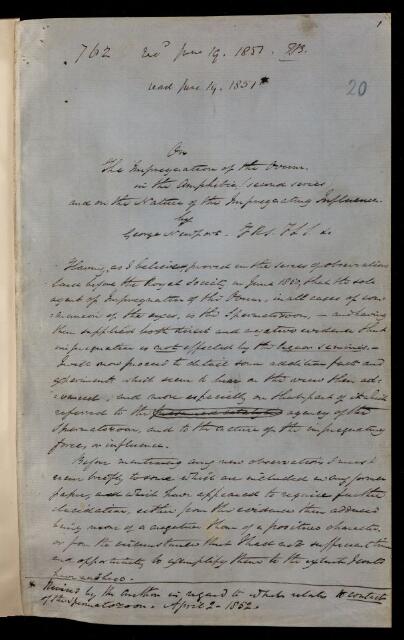 1
762 Recd June 19. 1851. 
read June 19. 1851 *
20
On
The Impregnation of the Ovum
in the Amphibia (second series
and on the Nature of the Impregnating Influence.
by
George Newport. F.R.S. F.L.S. &c
Having, as I believe, proved in the series of observations
laid before the Royal Society in June 1850, that the sole
agent of Impregnation of the Ovum, in all cases of com-
munion of the sexes, is the Spermatozoon, – and having
then supplied both direct and negative evidence that
impregnation is not effected by the liquor seminis, –
I will now proceed to detail some additional facts and
experiments which seem to bear on the views then ad-
vanced; and more especially on that part of it which
referred to the agency of the
Spermatozoon, and to the nature of the impregnating
force, or influence.
Before mentioning any new observations I must
recur briefly to some which are included in my former
paper, and which have appeared to require further
elucidation, either from the evidence then adduced
being more of a negative than of a positive character,
or from the circumstances that I had not sufficient time
and opportunity to exemplify them to the extent I could
have wished.
* Revised by the Author in regard to what relates to contact
of the Spermatozoon. April 2 - 1852.